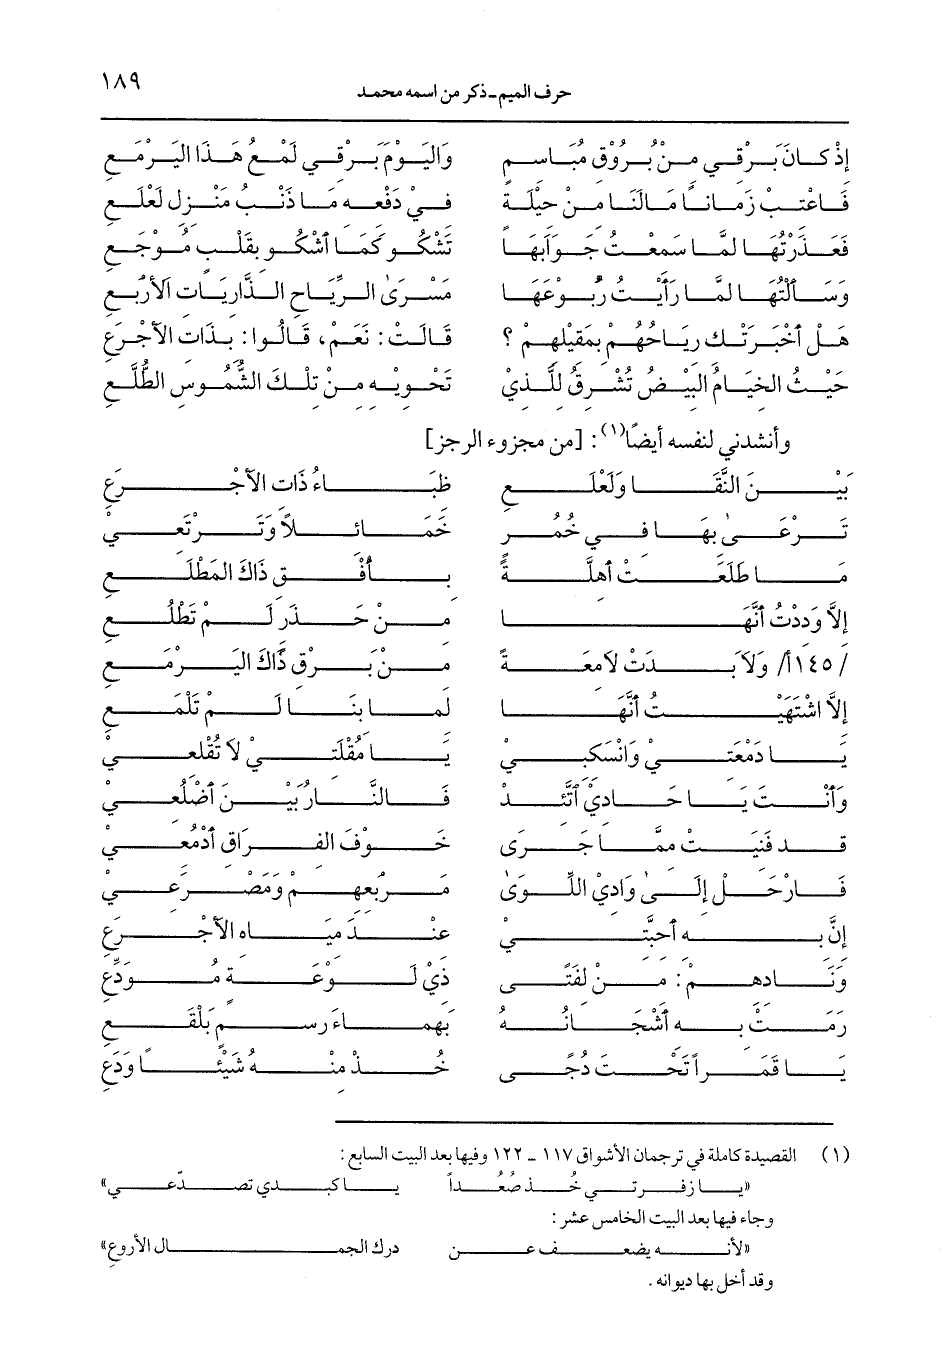 حرف الميم ـ ذكر من اسمه محمد ١٨٩
إِذْ كَانَ بَرْقِي مِنْ بُرُوْقِ مُبَاسِمٍ وَاليَوْمَ بَرْقِي لَمْعُ هَذَا اليَرْمَعِ
فَاعْتِبْ زَمَانًا مَا لَنَا مِنْ حِيْلَةٍ فِيْ دَفْعِهِ مَا ذَنْبُ مَنْزِلِ لَعْلَعِ
فَعَذَرْتُهَا لَمَّا سَمِعْتُ جَوَابَهَا تَشْكُو كَمَا أَشْكُو بِقَلْبٍ مُوْجَعِ
وَسَأَلْتُهَا لَمَّا رَأَيْتُ رُبُوْعَهَا مَسْرَىٰ الرِّيَاحِ الذَّارِيَاتِ الأَرْبَعِ
هَلْ أَخْبَرَتْكِ رِيَاحُهُمْ بِمَقِيْلِهِمْ ؟ قَالَتْ: نَعَمْ، قَالُوا: بِذَاتِ الأَجْرَعِ
حَيْثُ الخِيَامُ البِيْضُ تُشْرِقُ لِلَّذِيْ تَحْوِيْهِ مِنْ تِلْكَ الشُّمُوْسِ الطُّلَّعِ
وأنشدني لنفسه أيضًا(١): [من مجزوء الرجز]
بَيْنَ النَّقَا وَلَعْلَعِ ظِبَاءُ ذَاتِ الأَجْرَعِ
تَرْعَىٰ بِهَا فِي خُمُرٍ خَمَائِلاً وَتَرْتَعِيْ
مَا طَلَعَتْ أَهِلَّةً بِأُفْقِ ذَاكَ المَطْلَعِ
إِلاَّ وَدِدْتُ أَنَّهَا مِنْ حَذَرٍ لَمْ تَطْلُعِ
/١٤٥أ/ وَلاَ بَدَتْ لامِعَةً مِنْ بَرْقِ ذَاكَ اليَرْمَعِ
إِلاَّ اشْتَهَيْتُ أَنَّهَا لِمَا بِنَا لَمْ تَلْمَعِ
يَا دَمْعَتِيْ وَانْسَكِبِيْ يَا مُقْلَتِيْ لاَ تُقْلِعِيْ
وَأَنْتَ يَا حَادِيْ اتَّئِدْ فَالنَّارُ بَيْنَ أَضْلُعِيْ
قد فَنِيَتْ مِمَّا جَرَى خَوْفَ الفِرَاقِ أَدْمُعِيْ
فَارْحَلْ إِلَىٰ وَادِيْ اللِّوَىٰ مَرْبَعِهِمْ وَمَصْرَعِيْ
إِنَّ بِهِ أَحِبَّتِيْ عِنْدَ مِيَاهِ الأَجْرَعِ
وَنَادِهِمْ: مَنْ لِفَتًى ذِيْ لَوْعَةٍ مُوَدِّعِ
رَمَتْ بِهِ أَشْجَانُهُ بَهْمَاءَ رَسْمٍ بَلْقَعِ
يَا قَمَراً تَحْتَ دُجًى خُذْ مِنْهُ شَيْئًا وَدَعِ
(١) القصيدة كاملة في ترجمان الأشواق ١١٧ ـ ١٢٢ وفيها بعد البيت السابع:
«يا زفرتي خُذ صُعُداً يا كبدي تصدّعي»
وجاء فيها بعد البيت الخامس عشر:
«لأنه يضعف عن درك الجمال الأروعِ»
وقد أخل بها ديوانه.